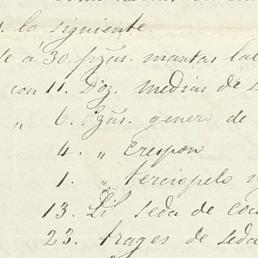 lo siguiente.
á 30. pzas. mantas
con 11. Doz. medias de
" 6. pzas. genero de
4. " crespon
1. " terciopelo
13. Ll seda de
23. trages de seda